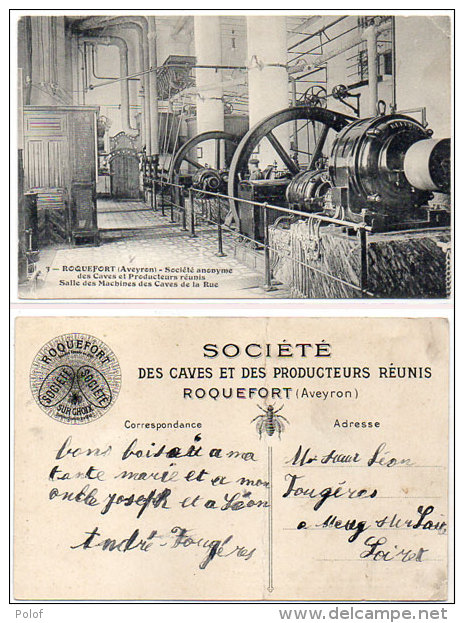 3 — ROQUEFORT (Aveyron) - Société anonyme
des Caves et Producteurs réunis
Salle des Machines des Caves de la Rue
ROQUEFORT
SOCIÉTÉ SOCIÉTÉ
SURCHOIX
SOCIÉTÉ
DES CAVES ET DES PRODUCTEURS RÉUNIS
ROQUEFORT (Aveyron)
Correspondance
Adresse
bons baisaü a ma
tante marie et a mon
oncle Joseph et a Léon
André Fougères
Léon
Fougéres
a Meug sur Loire
Loiret
Polof
www.delcampe.net